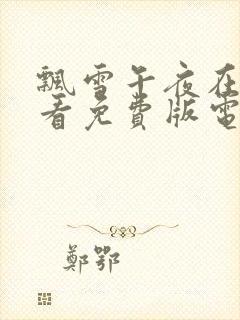 飄雪午夜在
看免費版電
鄭鄂